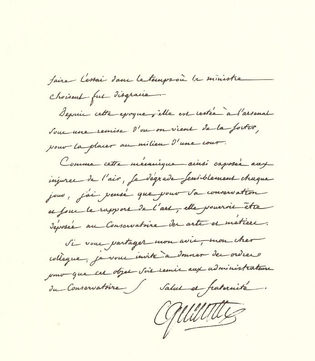 faire l'essai dans le temps où le ministre
choiseul fut disgracié.
Depuis cette epoque, elle est restée à l'arsenal
sous une remise d'où on vient de la sortir,
pour la placer au milieu d'une cour.
Comme cette mécanique ainsi exposée aux
injures de l'air, se dégrade sensiblement chaque
jour, j'ai pensé que pour sa conservation
et sous le rapport de l'art, elle pourroit être
déposée au Conservatoire des arts et métiers.
Si vous partagez mon avis, mon cher
collegue, je vous invite à donner des ordres
pour que cet objet soit remis aux administrateurs
du Conservatoire / Salut et fraternité.